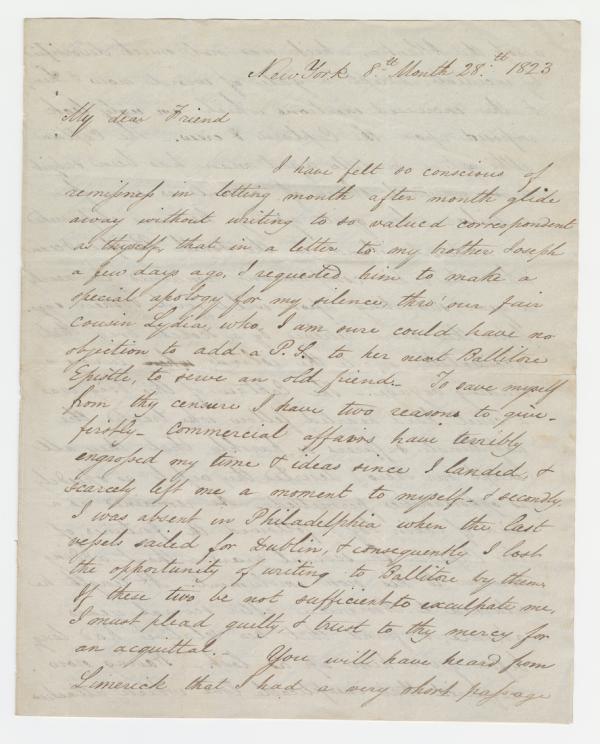 New York 8.th Month 28.th 1823
My dear Friend
I have felt so conscious of
remissness in letting month after month glide
away without writing to so valued correspondent
as thyself, that in a letter to my brother Joseph
a few days ago, I requested him to make a
special apology for my silence, thro' our fair
Cousin Lydia, who, I am sure could have no
objection to add a P.S. to her next Ballitore
Epistle, to serve an old friend. To save myself
from thy censure I have two reasons to give.
firstly - Commercial affairs have terribly
engrossed my time & ideas since I landed, &
scarcely left me a moment to myself. & secondly,
I was absent in Philadelphia when the last
vessels sailed for Dublin, & consequently I lost
the opportunity of writing to Ballitore by them.
If these two be not sufficient to exculpate me,
I must plead guilty, & trust to thy mercy for
an acquittal. You will have heard from
Limerick that I had a very short passage